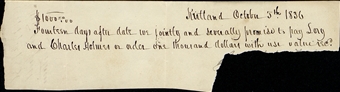 $1000.00 Kirtland October 5th 1836
Fourteen days after date we jointly and severally promise to pay Levy
and Charles Holmes or order one thousand dollars with use value Recd